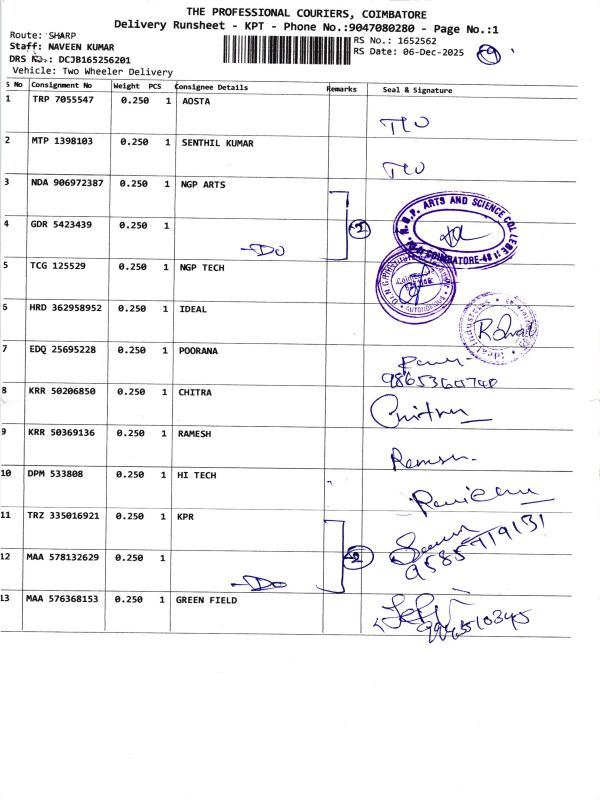 THE PROFESSIONAL COURIERS, COIMBATORE
Delivery Runsheet - KPT - Phone No.:9047080280 - Page No.:1
Route: SHARP
Staff: NAVEEN KUMAR
DRS No.: DCJB165256201
Vehicle: Two Wheeler Delivery
RS No.: 1652562
RS Date: 06-Dec-2025
S No Consignment No Weight PCS Consignee Details Remarks Seal & Signature
1 TRP 7055547 0.250 1 AOSTA
2 MTP 1398103 0.250 1 SENTHIL KUMAR
3 NDA 906972387 0.250 1 NGP ARTS
ARTS AND SCIENCE COLLEGE
COIMBATORE-48
4 GDR 5423439 0.250 1 -Do 2
5 TCG 125529 0.250 1 NGP TECH
AUTONOMOUS
6 HRD 362958952 0.250 1 IDEAL
Ideal Industries
7 EDQ 25695228 0.250 1 POORANA
8 KRR 50206850 0.250 1 CHITRA
9 KRR 50369136 0.250 1 RAMESH
10 DPM 533808 0.250 1 HI TECH
11 TRZ 335016921 0.250 1 KPR
9585719131
12 MAA 578132629 0.250 1 -Do 2
13 MAA 576368153 0.250 1 GREEN FIELD